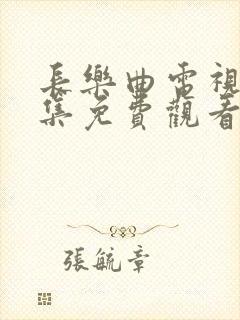 長樂曲電視
集免費觀看
張毓章